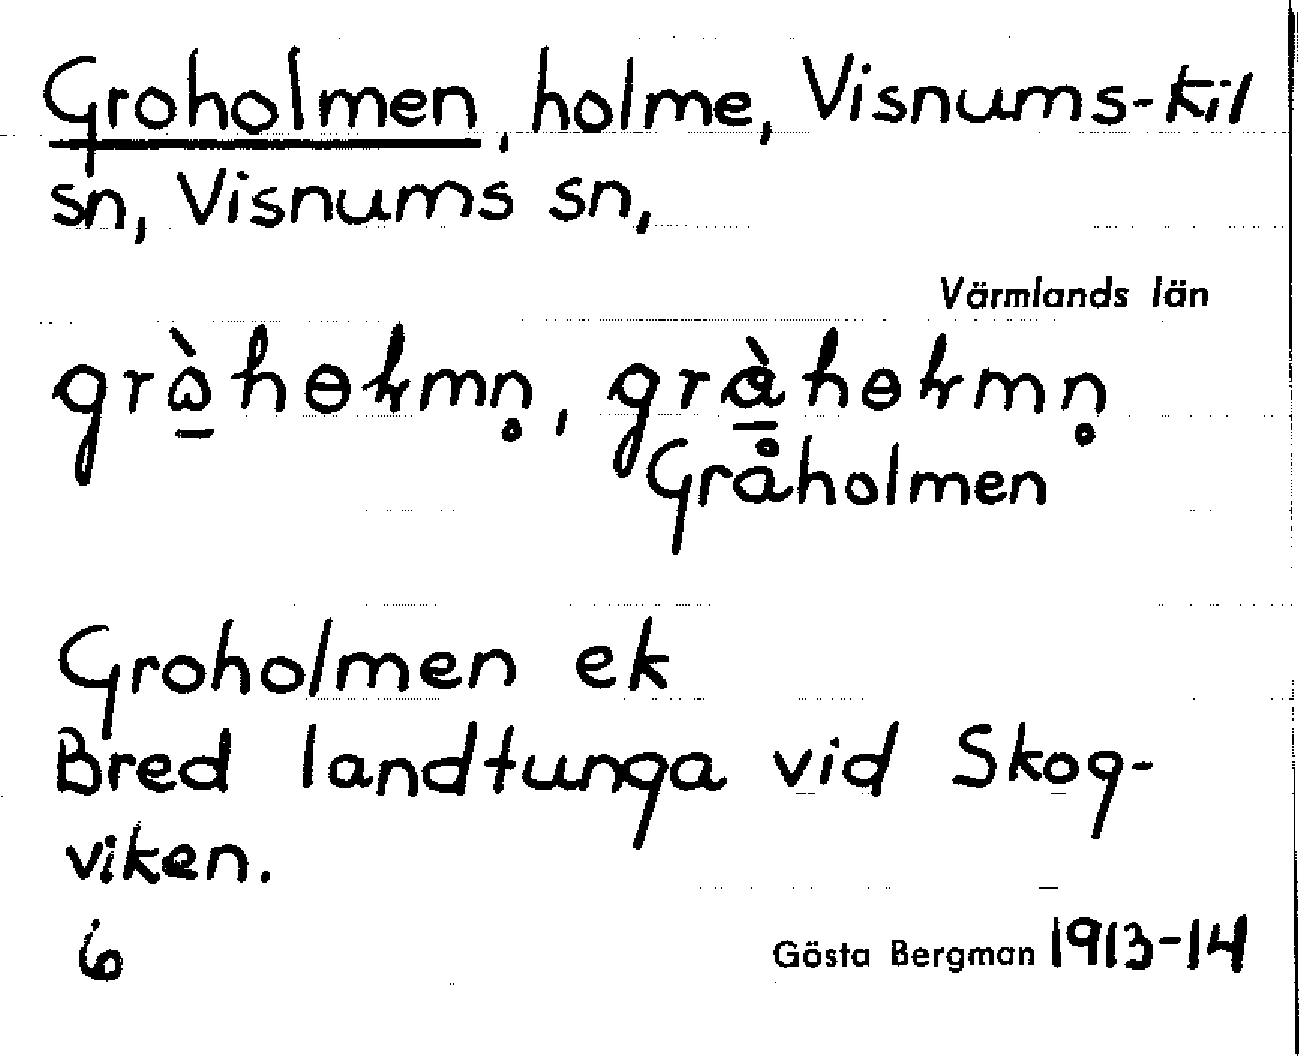 Groholmen, holme, Visnums-Kil
sn, Visnums sn,
Värmlands län
Gråholmen
Groholmen ek
Bred landtunga vid Skog-
viken.
6
Gösta Bergman 1913-14